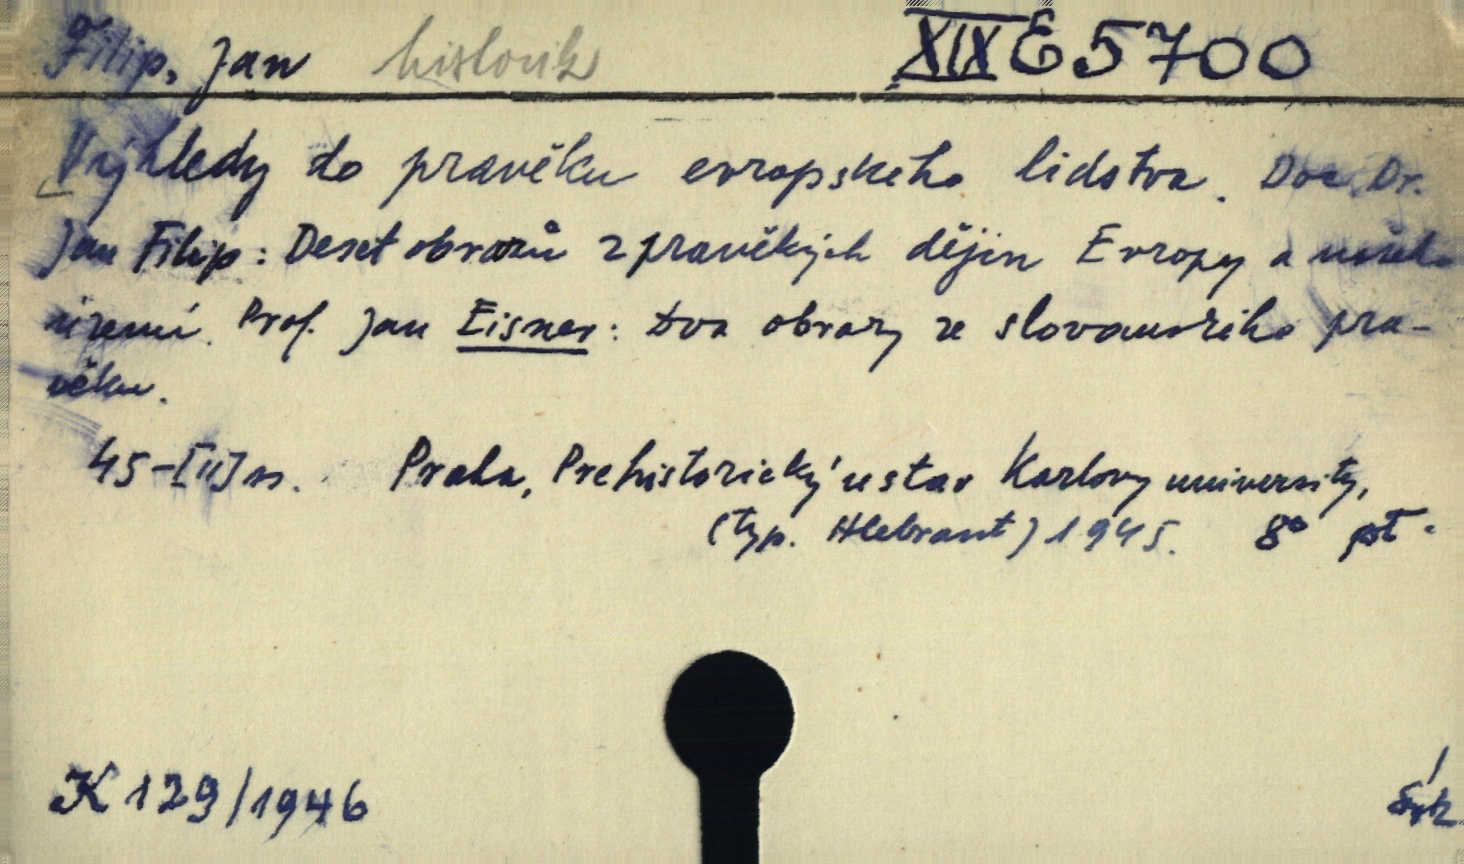 Filip, Jan historik XIX E 5700
Výhledy do pravěku evropského lidstva. Doc. Dr.
Jan Filip: Deset obrazů z pravěkých dějin Evropy a našeho
území. Prof. Jan Eisner: Dva obrazy ze slovanského pra-
věku.
45-[II] s. Praha, Prehistorický ustav Karlovy university,
(typ. Hlebrant) 1945. 8°
K 129/1946